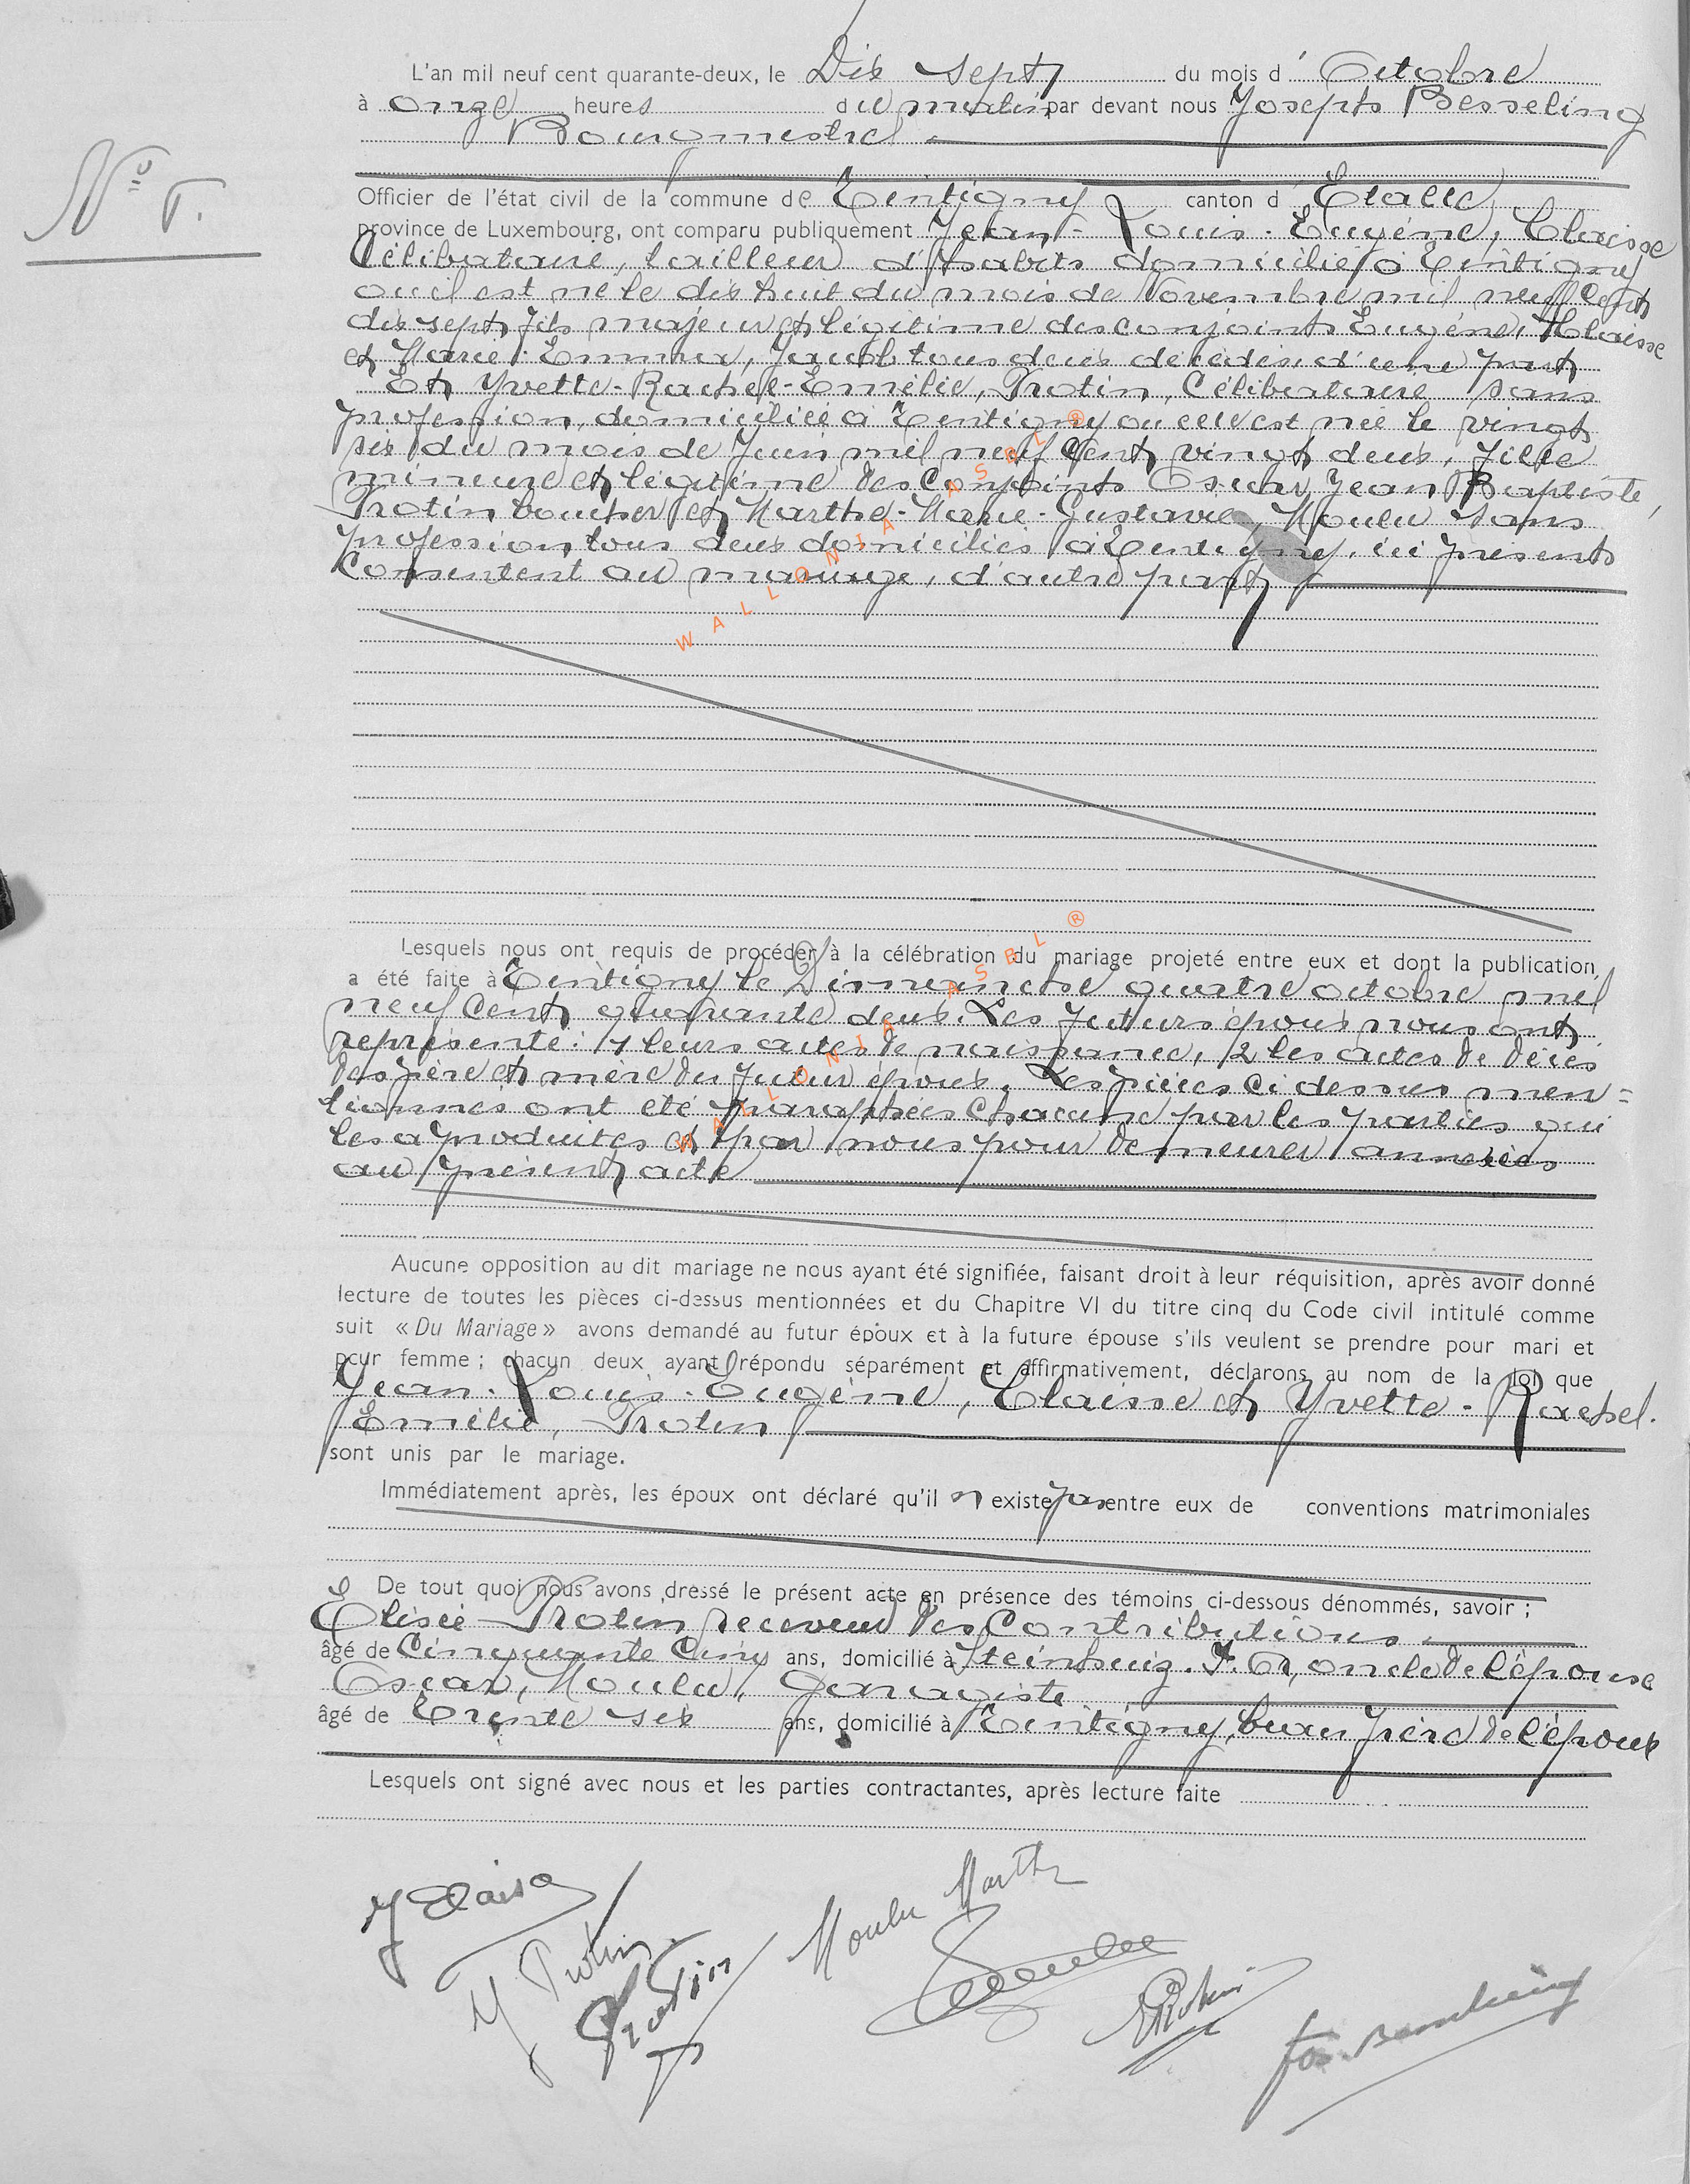 L'an mil neuf cent quarante-deux, le Dix sept du mois d' Octobre
à onze heures du matin par devant nous Joseph Besseling
Bourgmestre
Officier de l'état civil de la commune de Tintigny canton d' Etalle
N° 5.
province de Luxembourg, ont comparu publiquement Jean-Louis-Eugène, Claisse
Célibataire, tailleur d'habits domicilié à Tintigny
ou il est né le dix huit du mois de Novembre mil neuf cent
dix sept, fils majeur et légitime des conjoints Eugène, Claisse
et Marie-Emma, Jacob tous deux décédés, d'une part
Et Yvette-Rachel-Emélie, Protin, Célibataire sans
profession, domiciliée à Tintigny ou elle est née le vingt
six du mois de Juin mil neuf cent vingt deux, fille
mineure et légitime des Conjoints Oscar, Jean Baptiste,
Protin boucher et Marthe-Marie-Gustavie, Moulu sans
profession tous deux domiciliés à Tintigny, ici présents
Consentent au mariage, d'autre part
WALLONIA ASBL ®
Lesquels nous ont requis de procéder à la célébration du mariage projeté entre eux et dont la publication
a été faite à Tintigny le Dimanche quatre octobre mil
neuf cent quarante deux. Les futurs époux nous ont
représenté: 1 leurs actes de naissance, 2 les actes de décès
des père et mère du futur époux. Les pièces ci dessus men=
tionnes ont été paraphées chacune par les parties qui
les a produites et par nous pour demeurer annexées
au présent acte
WALLONIA ASBL ®
Aucune opposition au dit mariage ne nous ayant été signifiée, faisant droit à leur réquisition, après avoir donné
lecture de toutes les pièces ci-dessus mentionnées et du Chapitre VI du titre cinq du Code civil intitulé comme
suit « Du Mariage » avons demandé au futur époux et à la future épouse s'ils veulent se prendre pour mari et
pour femme ; chacun deux ayant répondu séparément et affirmativement, déclarons au nom de la loi que
Jean-Louis-Eugène, Claisse et Yvette-Rachel.
Emélie, Protin
sont unis par le mariage.
Immédiatement après, les époux ont déclaré qu'il n existe pas entre eux de conventions matrimoniales
De tout quoi nous avons dressé le présent acte en présence des témoins ci-dessous dénommés, savoir ;
Elisée Protin receveur des Contributions
âgé de Cinquante Cinq ans, domicilié à oncle de l'épouse
Oscar, Moulu, Garagiste
âgé de Trente six ans, domicilié à Tintigny, beau frère de l'époux
Lesquels ont signé avec nous et les parties contractantes, après lecture faite
J Claisse
Y. Protin
Protin
Moulu Marthe
Moulu
E Protin
Jos. Besseling